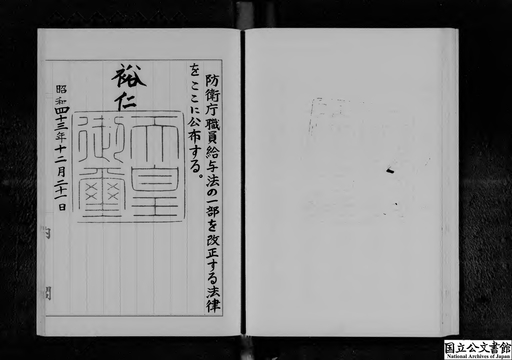 防衛庁職員給与法の一部を改正する法律
をここに公布する。
裕仁
天皇
御璽
昭和四十三年十二月二十一日
国立公文書館
National Archives of Japan